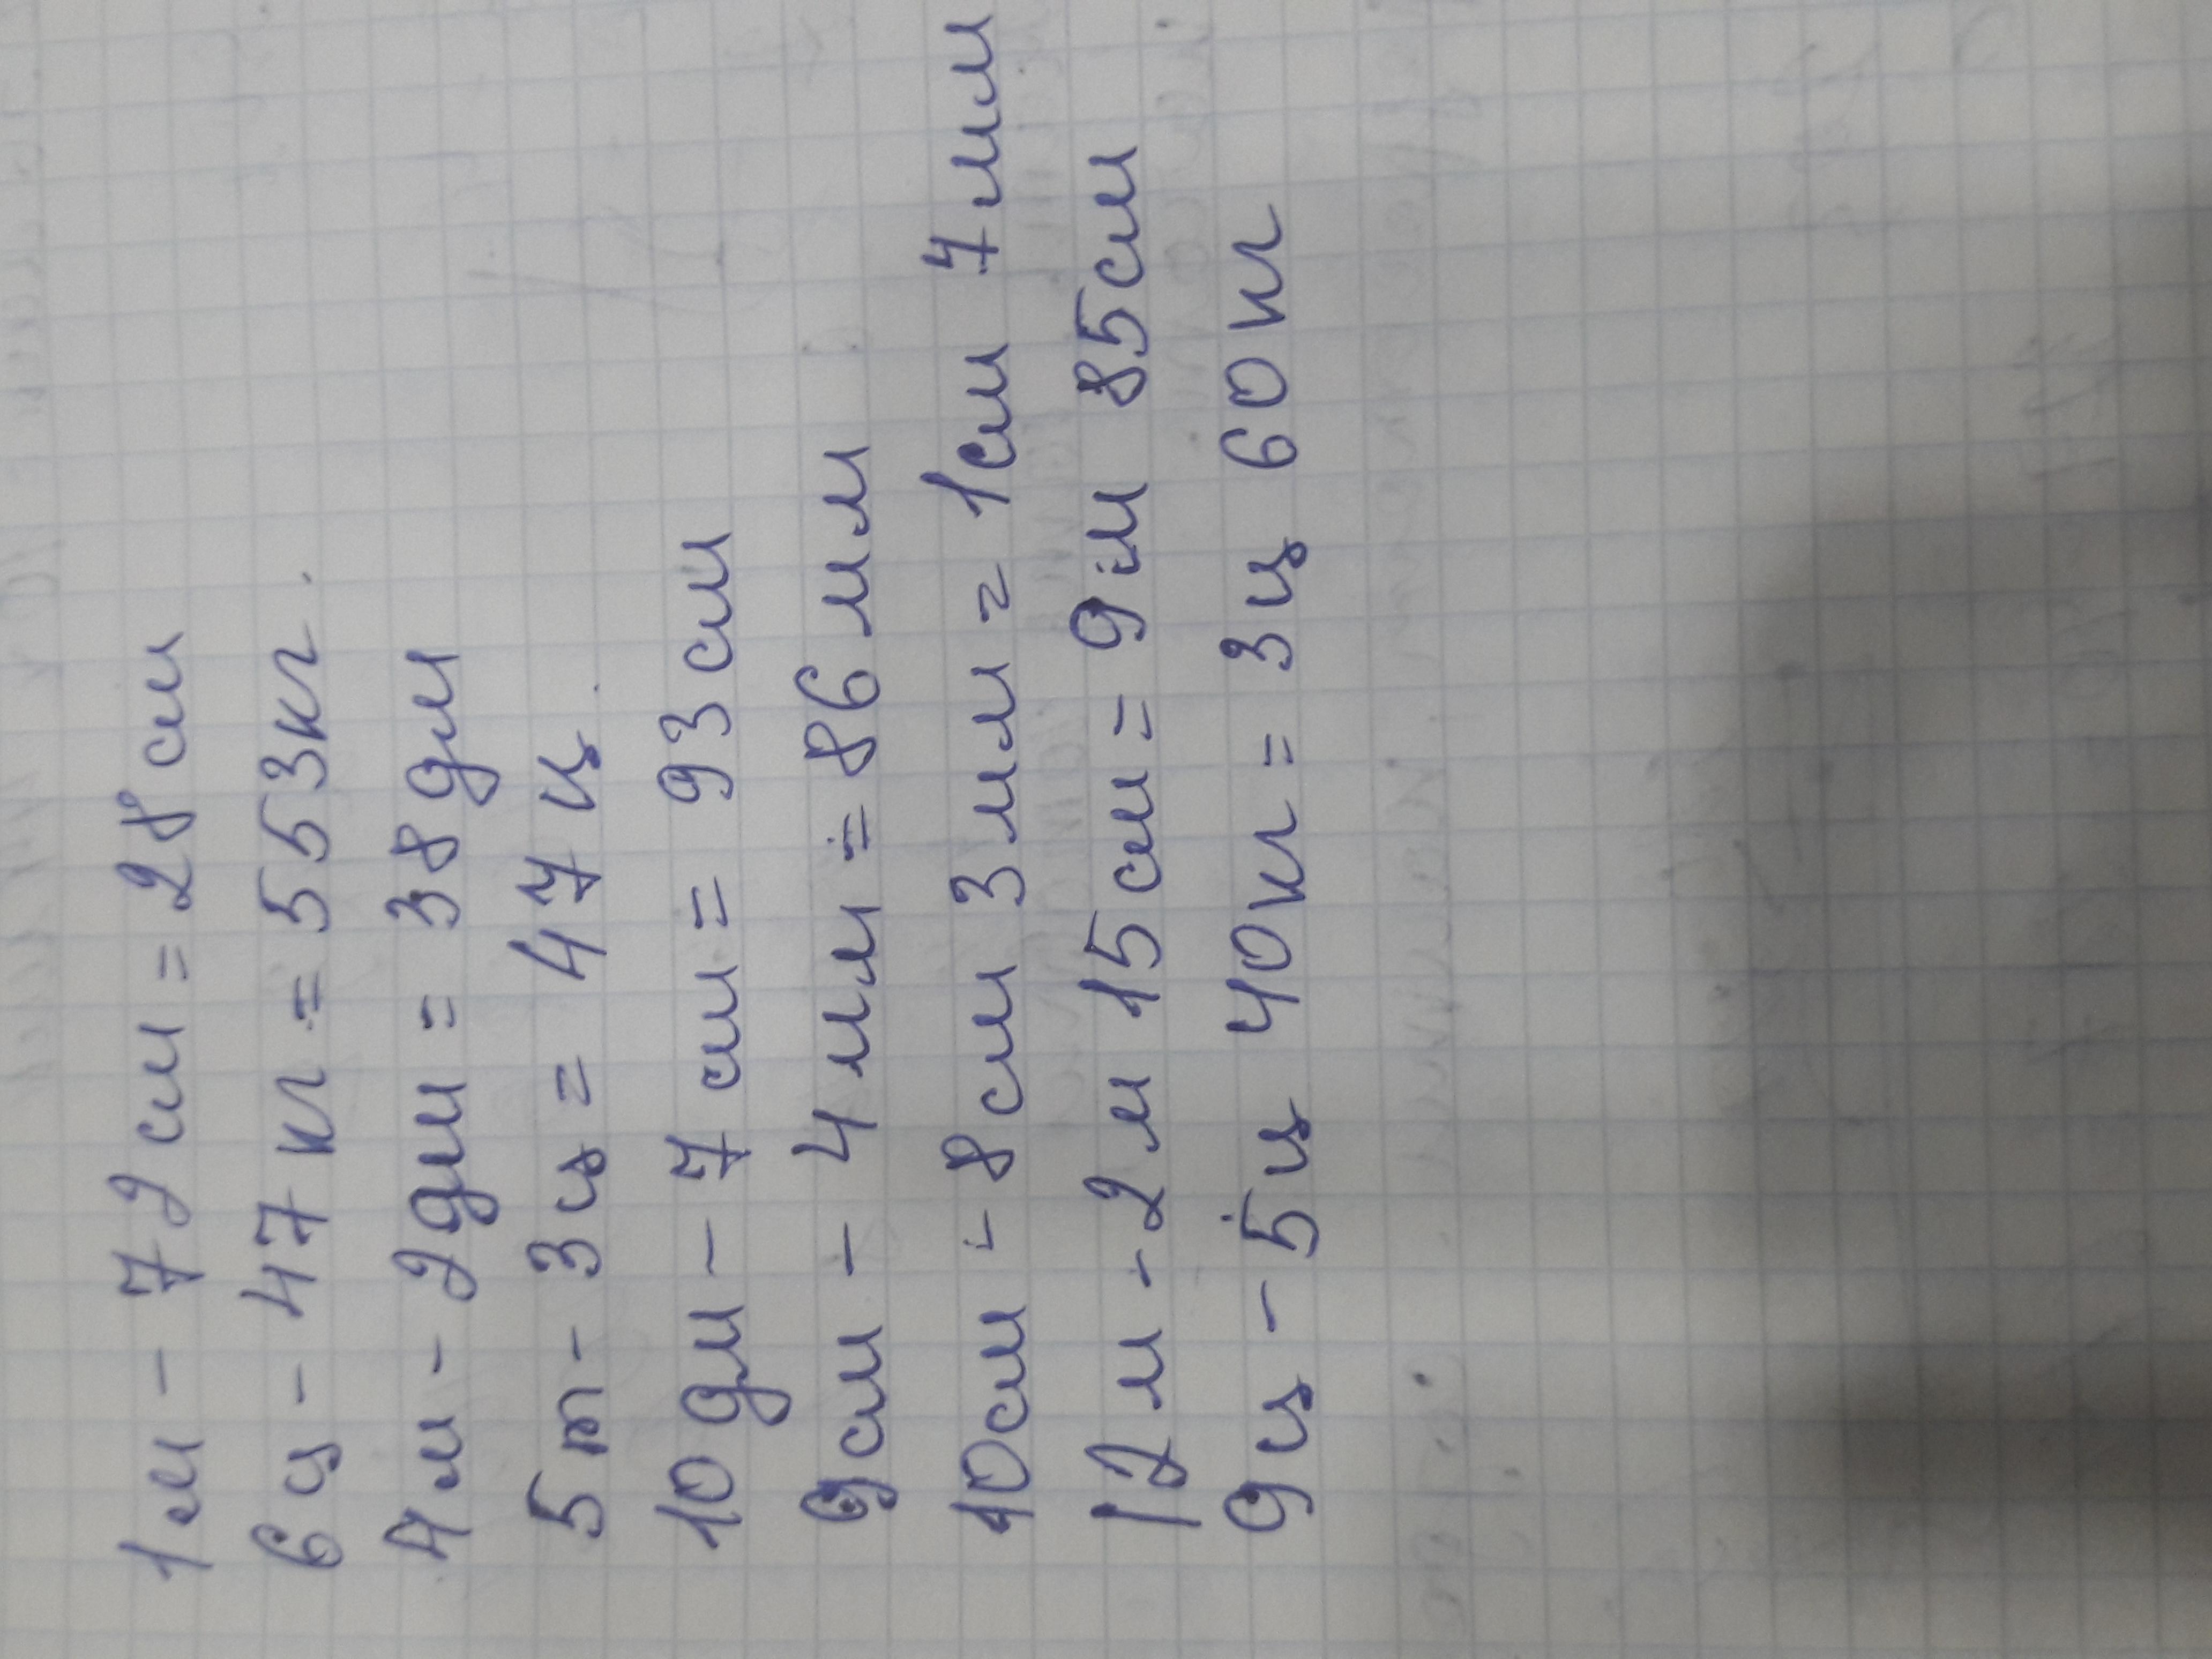 1м - 72см = 28см
6ц - 47кг = 553кг.
4м - 2дм = 38дм
5т - 3ц = 47ц.
10дм - 7см = 93см
9см - 4мм = 86мм
10см - 8см 3мм = 1см 7мм
12м - 2м 15см = 9м 85см
9ц - 5ц 40кг = 3ц 60кг